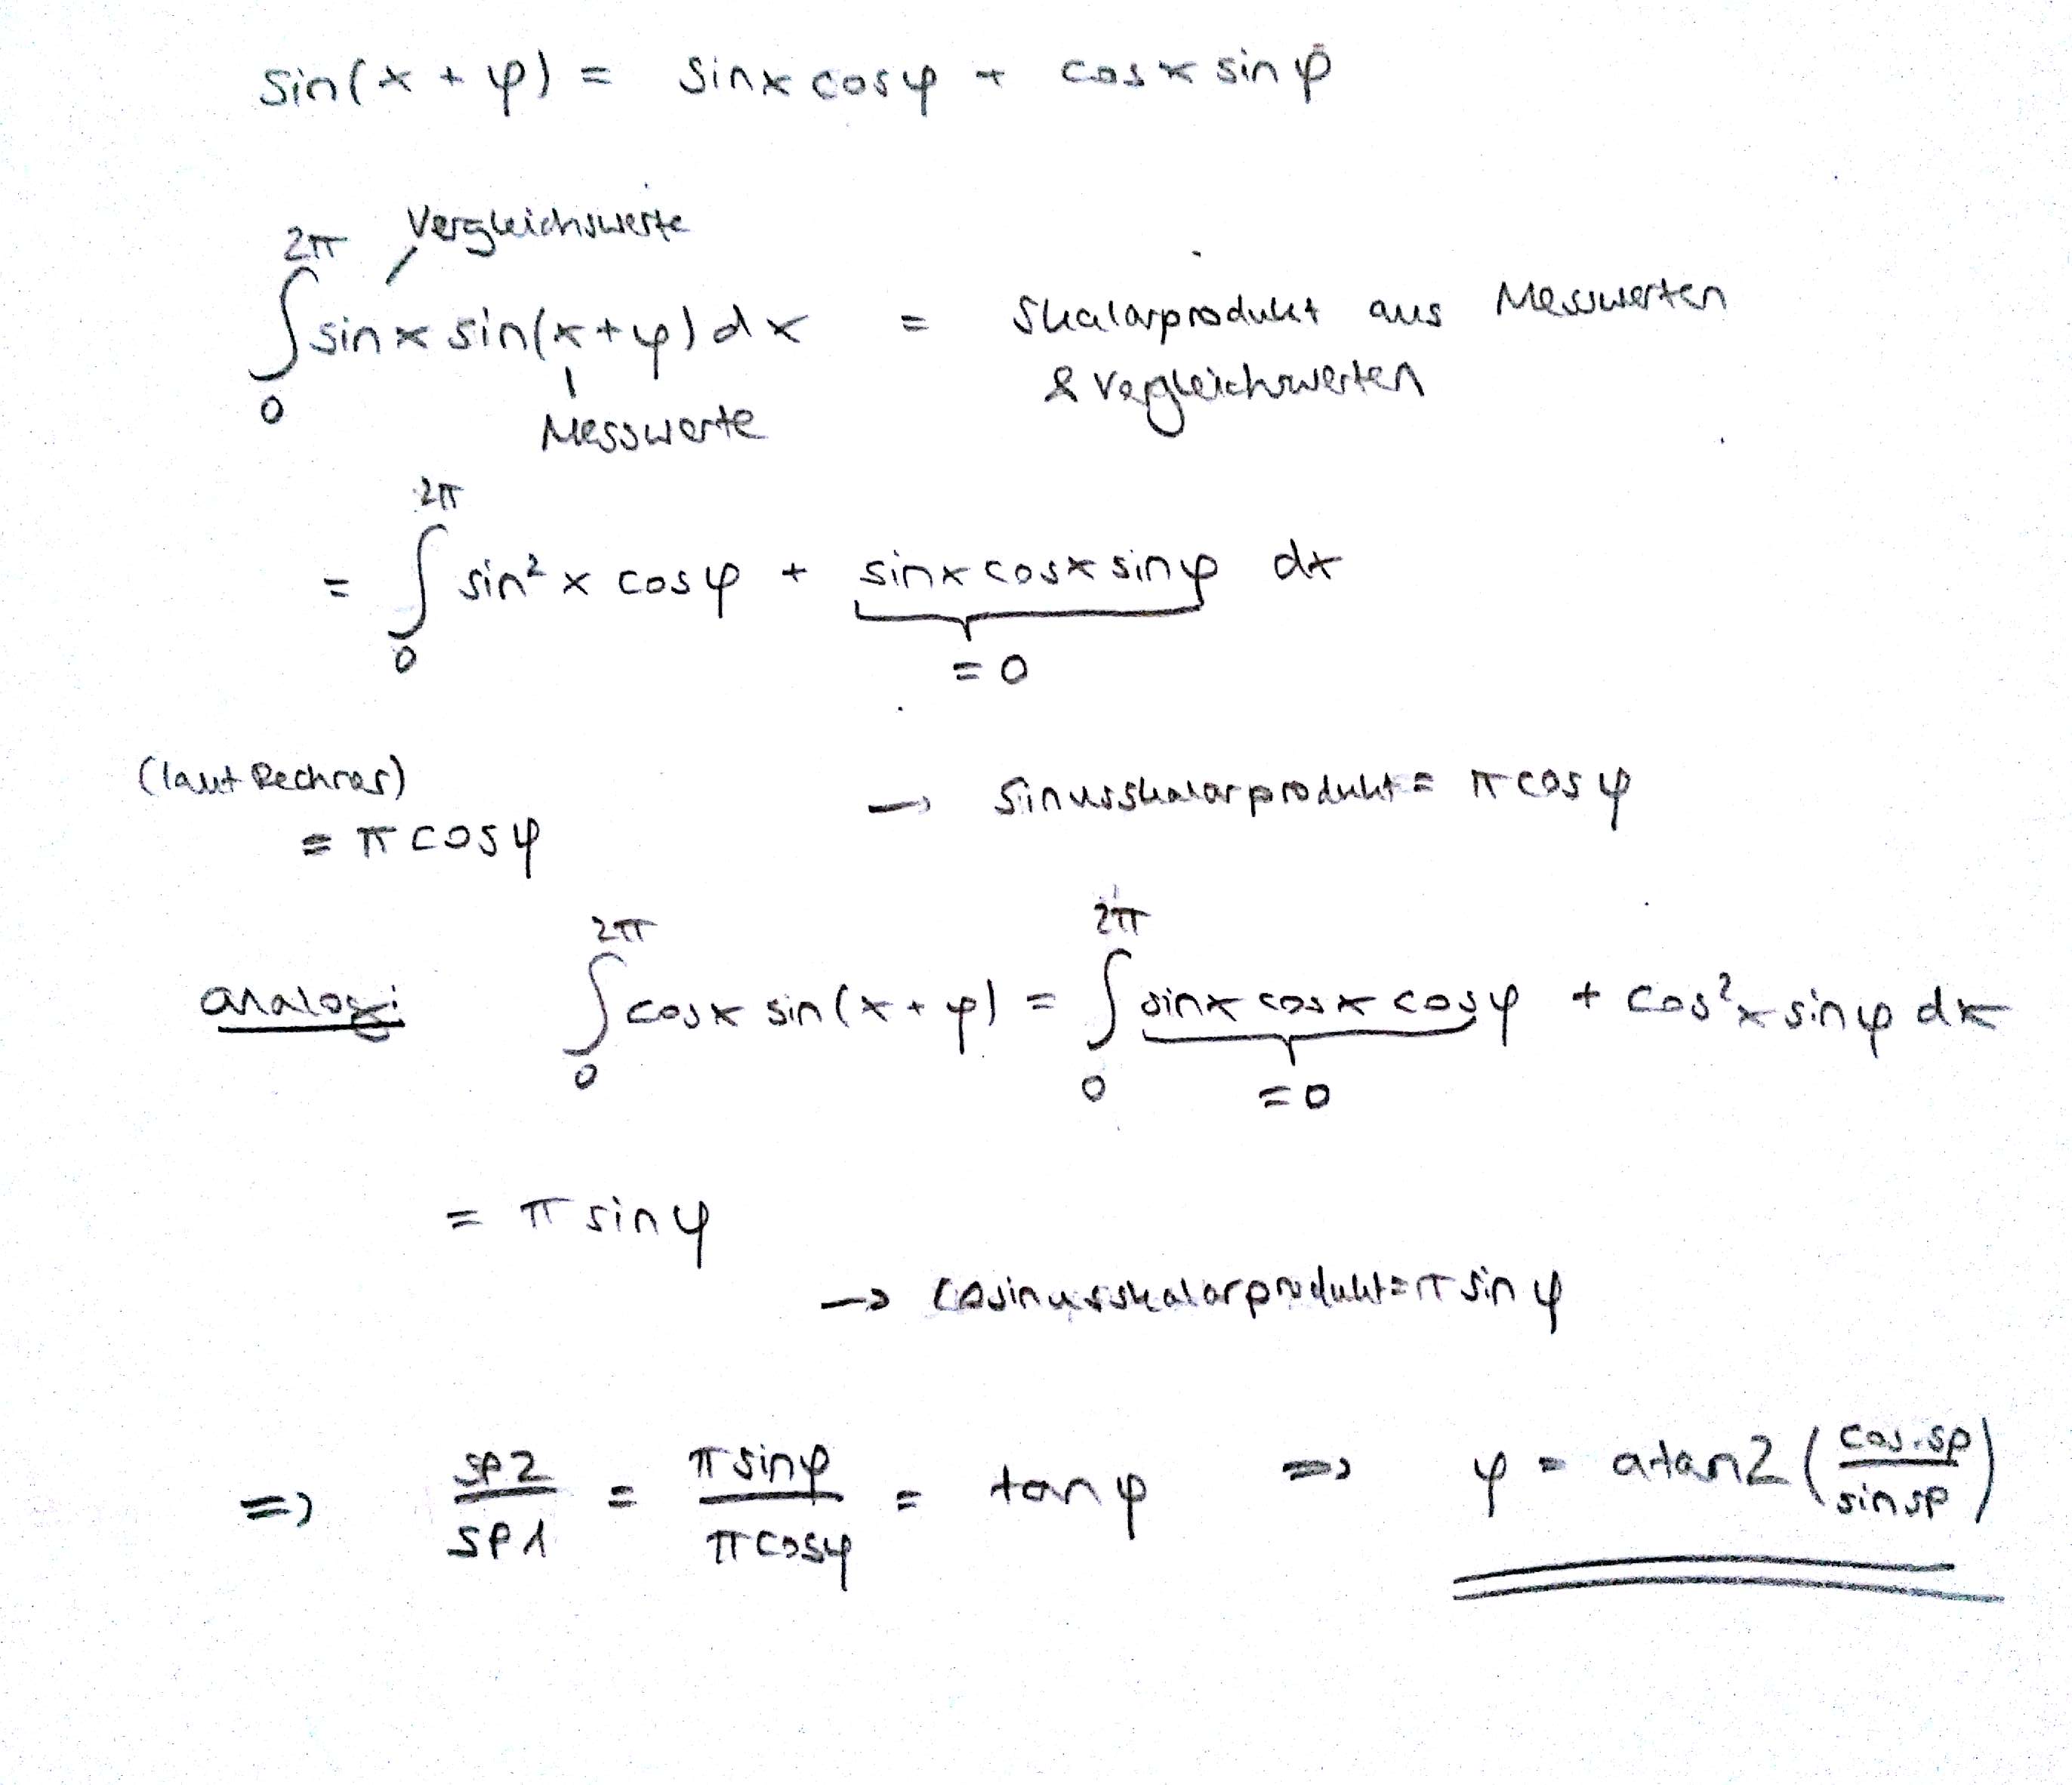 sin(x + φ) = sinx cosφ + cosx sinφ
Vergleichswerte
∫₀^2π sinx sin(x+φ) dx = Skalarprodukt aus Messwerten
& Vergleichswerten
Messwerte
= ∫₀^2π sin²x cosφ + sinx cosx sinφ dx
= 0
(laut Rechner)
= π cosφ → Sinusskalarprodukt = π cosφ
analog: ∫₀^2π cosx sin(x+φ) = ∫₀^2π sinx cosx cosφ + cos²x sinφ dx
= 0
= π sinφ
→ Cosinusskalarprodukt = π sinφ
=> SP2/SP1 = π sinφ/π cosφ = tanφ => φ = atan2(cos.sp/sinsp)